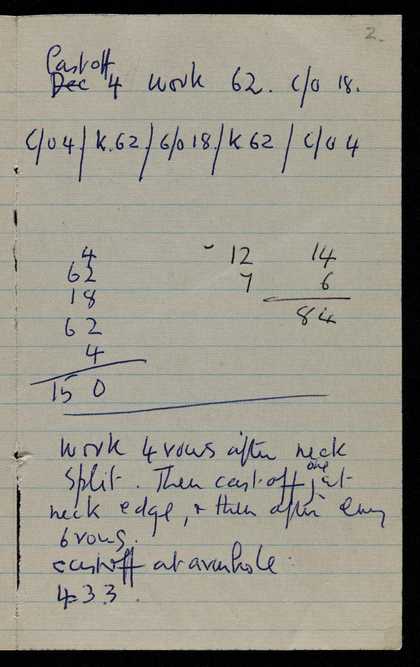 2.
Cast off
Dec 4 work 62. C/O 18.
C/O 4 / K.62 / C/O 18 / K 62 / C/O 4
4
62
18
62
4
150
- 12 14
7 6
84
work 4 rows after neck
split. Then cast off one st at
neck edge, + then after every
6 rows.
cast off at armhole.
4 3 3.